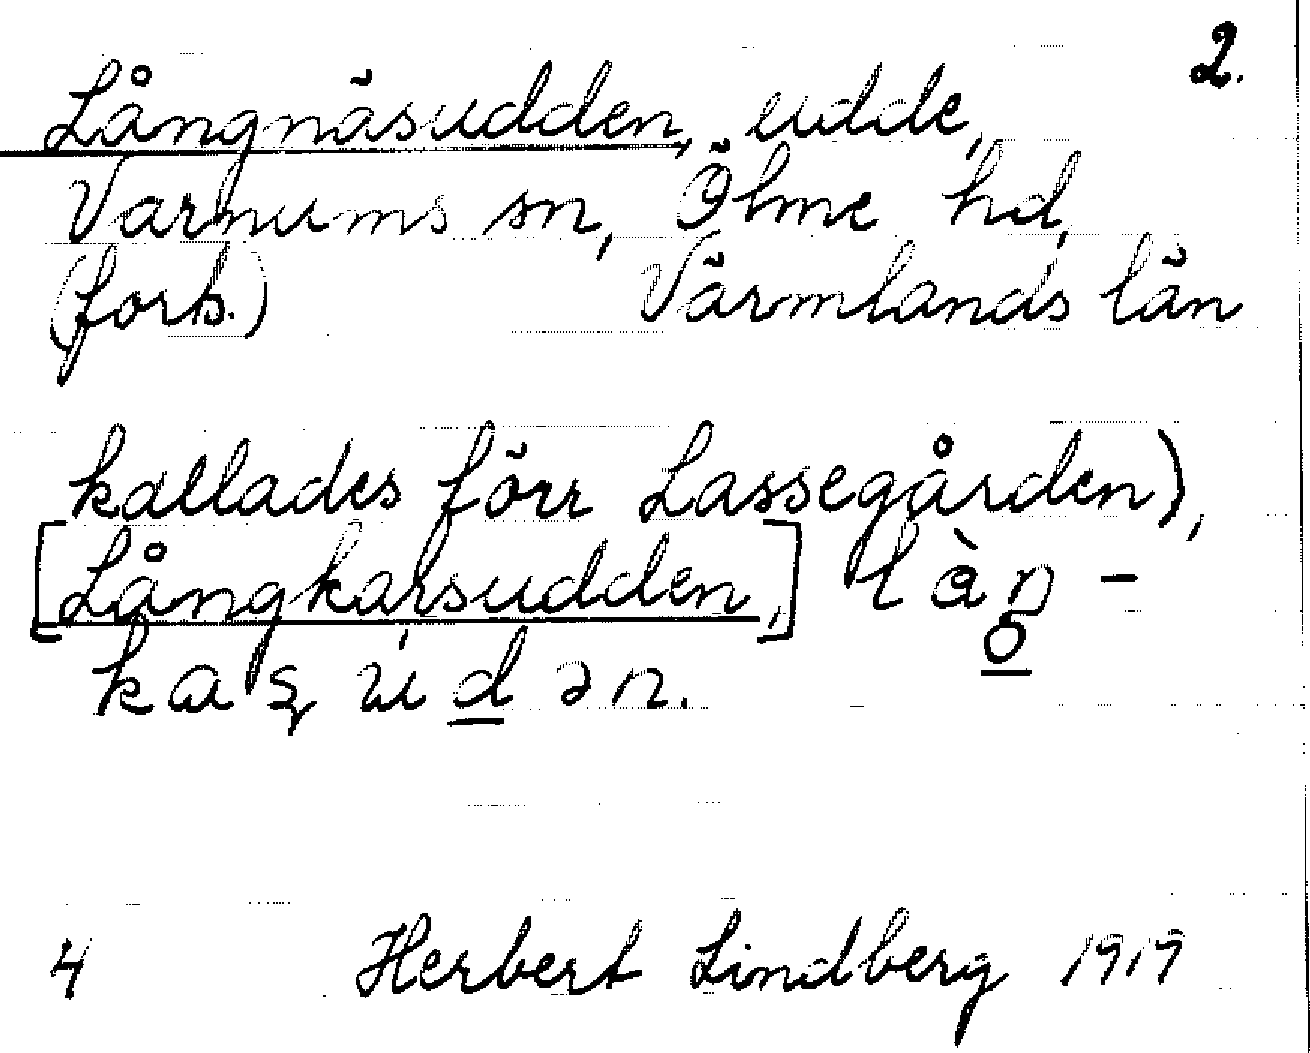 2.
Långnäsudden, udde,
Varnums sn, Ölme hd,
(forts.) Värmlands län
kallades förr Lassegården),
[Långkarsudden,] làŋ-
kaʂudən.
4 Herbert Lindberg 1917